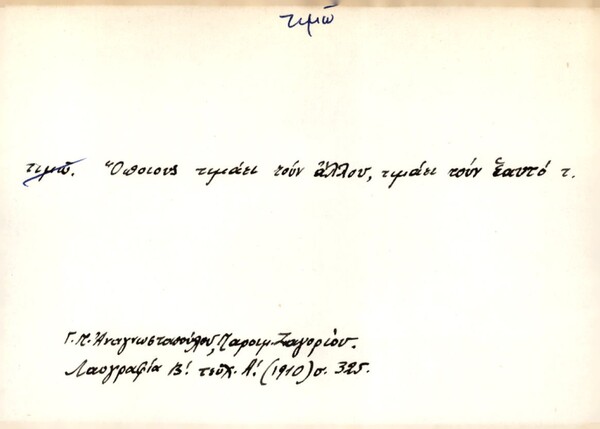 τιμῶ
τιμῶ. Ὅποιους τιμάει τοὺν ἄλλου, τιμάει τοὺν ἑαυτό τ.
Γ. Π. Ἀναγνωστοπούλου, Παροιμ. Ζαγορίου.
Λαογραφία Β'. τεῦχ. Α'. (1910) σ. 325.